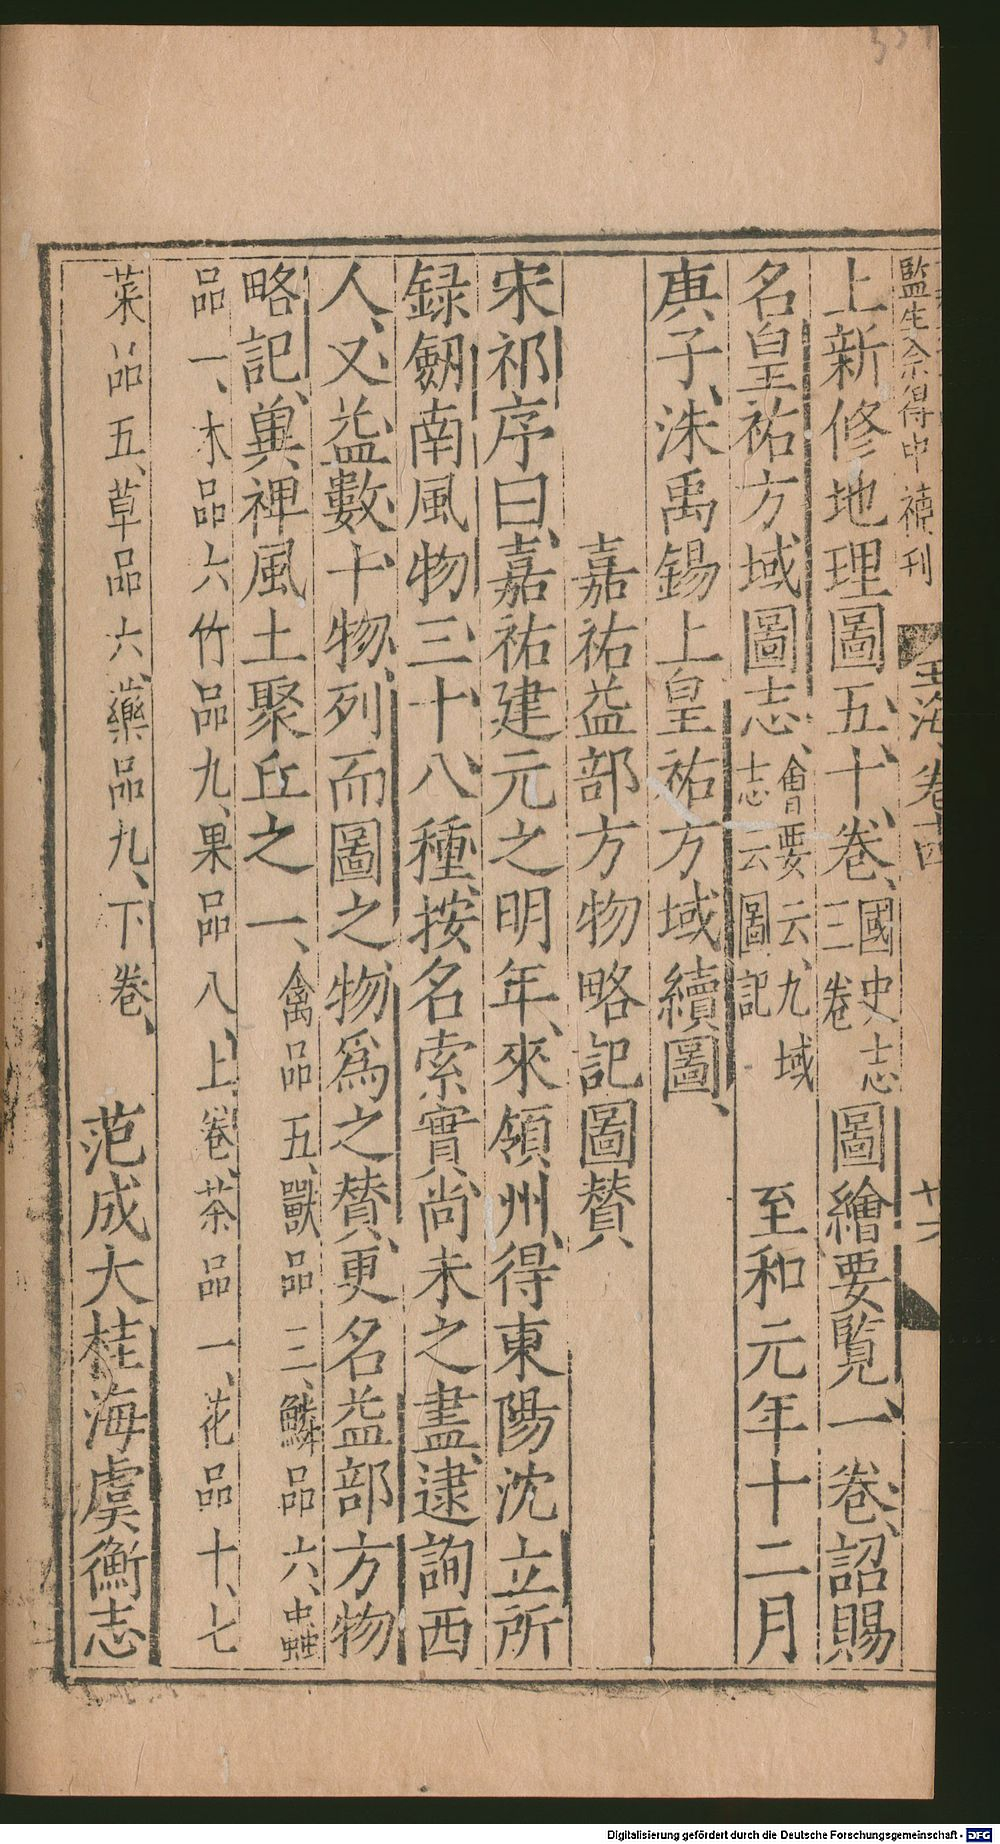 監生余得中補刊
玉海卷十四
廿六
上新修地理圖五十卷國史志三卷圖繪要覽一卷詔賜
名皇祐方域圖志會要云九域志云圖記 至和元年十二月
庚子洙禹錫上皇祐方域續圖
嘉祐益部方物略記圖贊
宋祁序曰嘉祐建元之明年來領州得東陽沈立所
録劒南風物三十八種按名索實尚未之盡逮詢西
人又益數十物列而圖之物爲之贊更名益部方物
略記兾裨風土聚丘之一禽品五獸品三鱗品六虫
品一木品六竹品九果品八上卷茶品一花品十七
菜品五草品六藥品九下卷 范成大桂海虞衡志
Digitalisierung gefördert durch die Deutsche Forschungsgemeinschaft - DFG